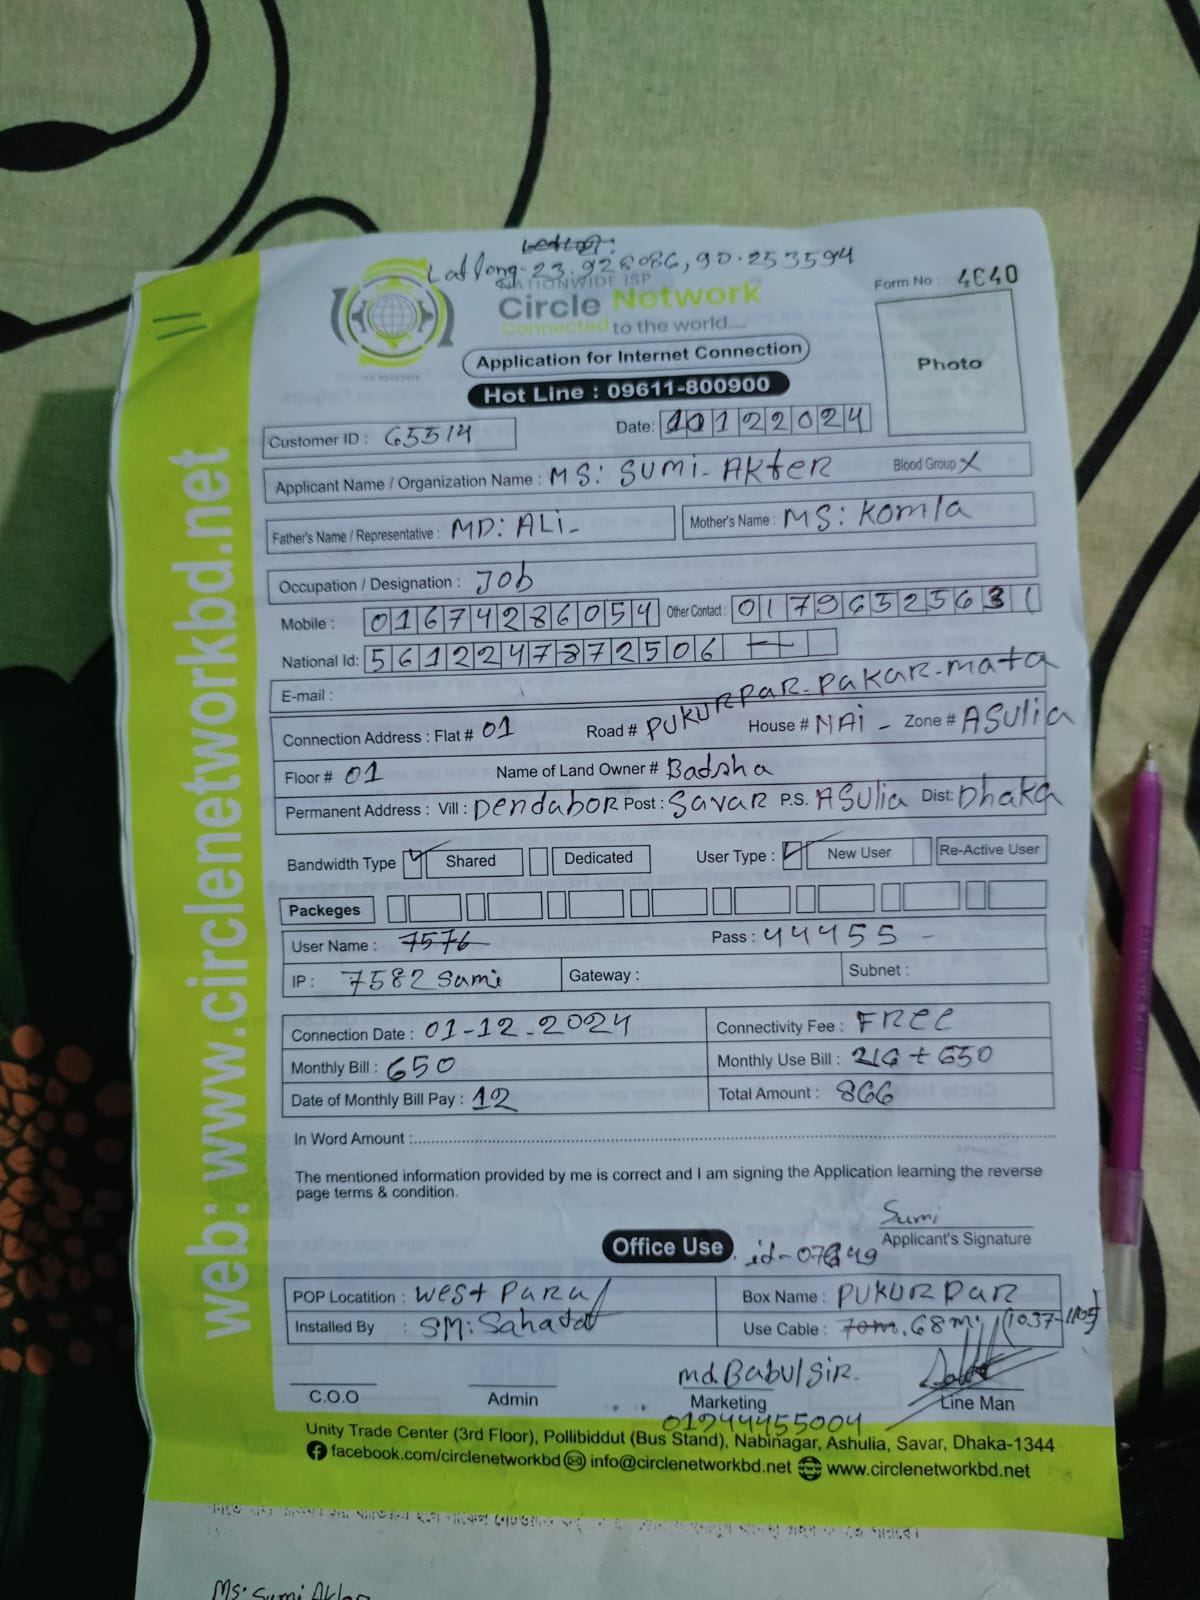 Lat long-23.928086,90.253594
NATIONWIDE ISP
Circle Network
Connected to the world.....
Form No : 4640
Application for Internet Connection
Photo
Hot Line : 09611-800900
Customer ID : 65514
Date: 10122024
Applicant Name / Organization Name : MS: SUMI- AKteR Blood Group X
Father's Name / Representative : MD: ALi- Mother's Name : MS: Komla
Occupation / Designation : Job
Mobile : 01674286054 Other Contact : 01796325631
National Id: 5612247872506
E-mail :
Connection Address : Flat # 01 Road # PUKURPAR-PAKAR-MATA House # NAi - Zone # ASULia
Floor # 01 Name of Land Owner # Badsha
Permanent Address : Vill : DendaboR Post : SavaR P.S. ASulia Dist: Dhaka
Bandwidth Type Shared Dedicated User Type : New User Re-Active User
Packeges
User Name : 7576 Pass : 44455 -
IP : 7582 Sumi Gateway : Subnet :
Connection Date : 01-12-2024 Connectivity Fee : FREE
Monthly Bill : 650 Monthly Use Bill : 216 + 650
Date of Monthly Bill Pay : 12 Total Amount : 866
In Word Amount :
The mentioned information provided by me is correct and I am signing the Application learning the reverse
page terms & condition.
Sumi
Applicant's Signature
Office Use
POP Locatition : West Para Box Name : PUKURPAR
Installed By : SM: Sahadat Use Cable : 70m, 68m, (1037-1105)
md. Babul SiR.
C.O.O Admin Marketing Line Man
Unity Trade Center (3rd Floor), Pollibiddut (Bus Stand), Nabinagar, Ashulia, Savar, Dhaka-1344
facebook.com/circlenetworkbd info@circlenetworkbd.net www.circlenetworkbd.net
web: www.circlenetworkbd.net
Ms: Sumi Akter